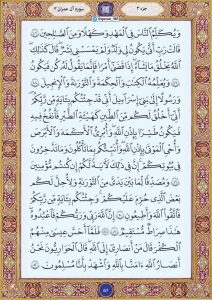 جزء ۳
سورة آل عمران ۳
وَيُكَلِّمُ ٱلنَّاسَ فِي ٱلْمَهْدِ وَكَهْلًا وَمِنَ ٱلصَّٰلِحِينَ ۝٤٦
قَالَتْ رَبِّ أَنَّىٰ يَكُونُ لِي وَلَدٌ وَلَمْ يَمْسَسْنِي بَشَرٌ قَالَ كَذَٰلِكِ
ٱللَّهُ يَخْلُقُ مَا يَشَآءُ إِذَا قَضَىٰٓ أَمْرًا فَإِنَّمَا يَقُولُ لَهُۥ كُن فَيَكُونُ ۝٤٧
وَيُعَلِّمُهُ ٱلْكِتَٰبَ وَٱلْحِكْمَةَ وَٱلتَّوْرَىٰةَ وَٱلْإِنجِيلَ ۝٤٨
وَرَسُولًا إِلَىٰ بَنِيٓ إِسْرَٰٓءِيلَ أَنِّي قَدْ جِئْتُكُم بِـَٔايَةٍ مِّن رَّبِّكُمْ
أَنِّيٓ أَخْلُقُ لَكُم مِّنَ ٱلطِّينِ كَهَيْـَٔةِ ٱلطَّيْرِ فَأَنفُخُ فِيهِ
فَيَكُونُ طَيْرًۢا بِإِذْنِ ٱللَّهِ وَأُبْرِئُ ٱلْأَكْمَهَ وَٱلْأَبْرَصَ
وَأُحْيِ ٱلْمَوْتَىٰ بِإِذْنِ ٱللَّهِ وَأُنَبِّئُكُم بِمَا تَأْكُلُونَ وَمَا تَدَّخِرُونَ
فِي بُيُوتِكُمْ إِنَّ فِي ذَٰلِكَ لَـَٔايَةً لَّكُمْ إِن كُنتُم مُّؤْمِنِينَ ۝٤٩
وَمُصَدِّقًا لِّمَا بَيْنَ يَدَيَّ مِنَ ٱلتَّوْرَىٰةِ وَلِأُحِلَّ لَكُم
بَعْضَ ٱلَّذِي حُرِّمَ عَلَيْكُمْ وَجِئْتُكُم بِـَٔايَةٍ مِّن رَّبِّكُمْ
فَٱتَّقُوا۟ ٱللَّهَ وَأَطِيعُونِ ۝٥٠ إِنَّ ٱللَّهَ رَبِّي وَرَبُّكُمْ فَٱعْبُدُوهُ
هَٰذَا صِرَٰطٌ مُّسْتَقِيمٌ ۝٥١ فَلَمَّآ أَحَسَّ عِيسَىٰ مِنْهُمُ
ٱلْكُفْرَ قَالَ مَنْ أَنصَارِيٓ إِلَى ٱللَّهِ قَالَ ٱلْحَوَارِيُّونَ نَحْنُ
أَنصَارُ ٱللَّهِ ءَامَنَّا بِٱللَّهِ وَٱشْهَدْ بِأَنَّا مُسْلِمُونَ ۝٥٢
٥٦